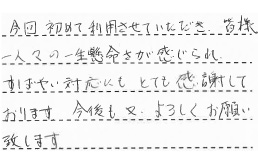 今回初めて利用させていただき、皆様
一人々の一生懸命さが感じられ
すばやい対応にも とても感謝して
おります 今後も又 よろしくお願い
致します